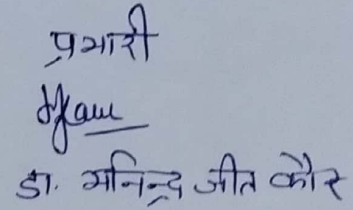 प्रभारी
डा. मनिन्द्र जीत कौर